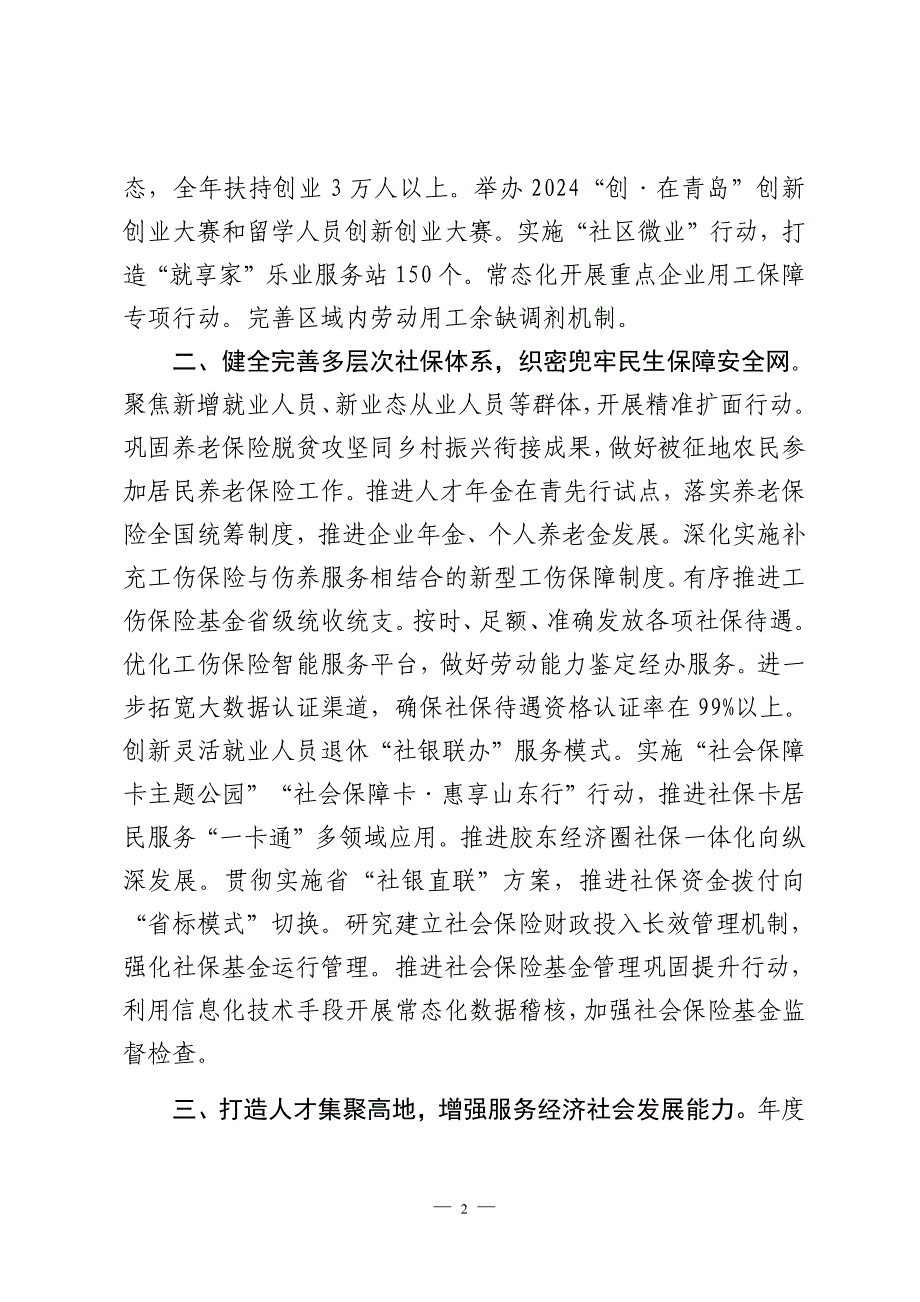 态，全年扶持创业 3 万人以上。举办 2024“创·在青岛”创新
创业大赛和留学人员创新创业大赛。实施“社区微业”行动，打
造“就享家”乐业服务站 150 个。常态化开展重点企业用工保障
专项行动。完善区域内劳动用工余缺调剂机制。
二、健全完善多层次社保体系，织密兜牢民生保障安全网。
聚焦新增就业人员、新业态从业人员等群体，开展精准扩面行动。
巩固养老保险脱贫攻坚同乡村振兴衔接成果，做好被征地农民参
加居民养老保险工作。推进人才年金在青先行试点，落实养老保
险全国统筹制度，推进企业年金、个人养老金发展。深化实施补
充工伤保险与伤养服务相结合的新型工伤保障制度。有序推进工
伤保险基金省级统收统支。按时、足额、准确发放各项社保待遇。
优化工伤保险智能服务平台，做好劳动能力鉴定经办服务。进一
步拓宽大数据认证渠道，确保社保待遇资格认证率在 99%以上。
创新灵活就业人员退休“社银联办”服务模式。实施“社会保障
卡主题公园”“社会保障卡·惠享山东行”行动，推进社保卡居
民服务“一卡通”多领域应用。推进胶东经济圈社保一体化向纵
深发展。贯彻实施省“社银直联”方案，推进社保资金拨付向
“省标模式”切换。研究建立社会保险财政投入长效管理机制，
强化社保基金运行管理。推进社会保险基金管理巩固提升行动，
利用信息化技术手段开展常态化数据稽核，加强社会保险基金监
督检查。
三、打造人才集聚高地，增强服务经济社会发展能力。年度
— 2 —